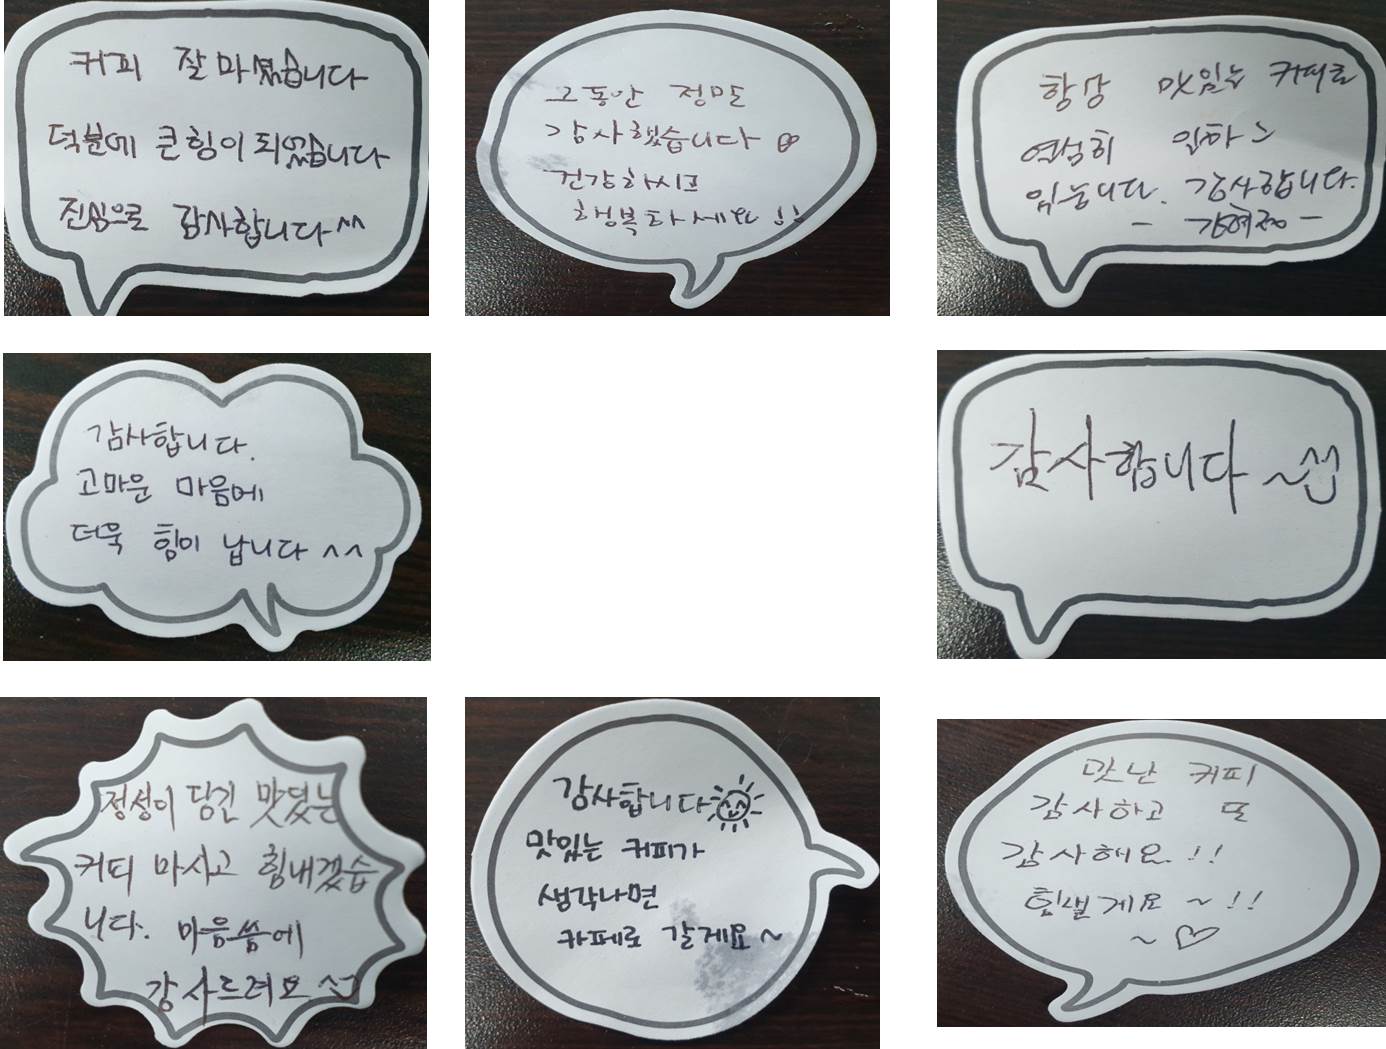 커피 잘 마셨습니다
덕분에 큰 힘이 되었습니다
진심으로 감사합니다 ^^
그동안 정말
감사했습니다
건강하시고
행복하세요 !!
항상 맛있는 커피로
열심히 일하고
있습니다. 감사합니다.
감사합니다.
고마운 마음에
더욱 힘이 납니다 ^^
감사합니다 ~
정성이 담긴 맛있는
커피 마시고 힘내겠습
니다. 마음씀에
감사드려요
감사합니다
맛있는 커피가
생각나면
카페로 갈게요 ~
맛난 커피
감사하고 또
감사해요 !!
힘낼게요 ~ !!
~ ♡